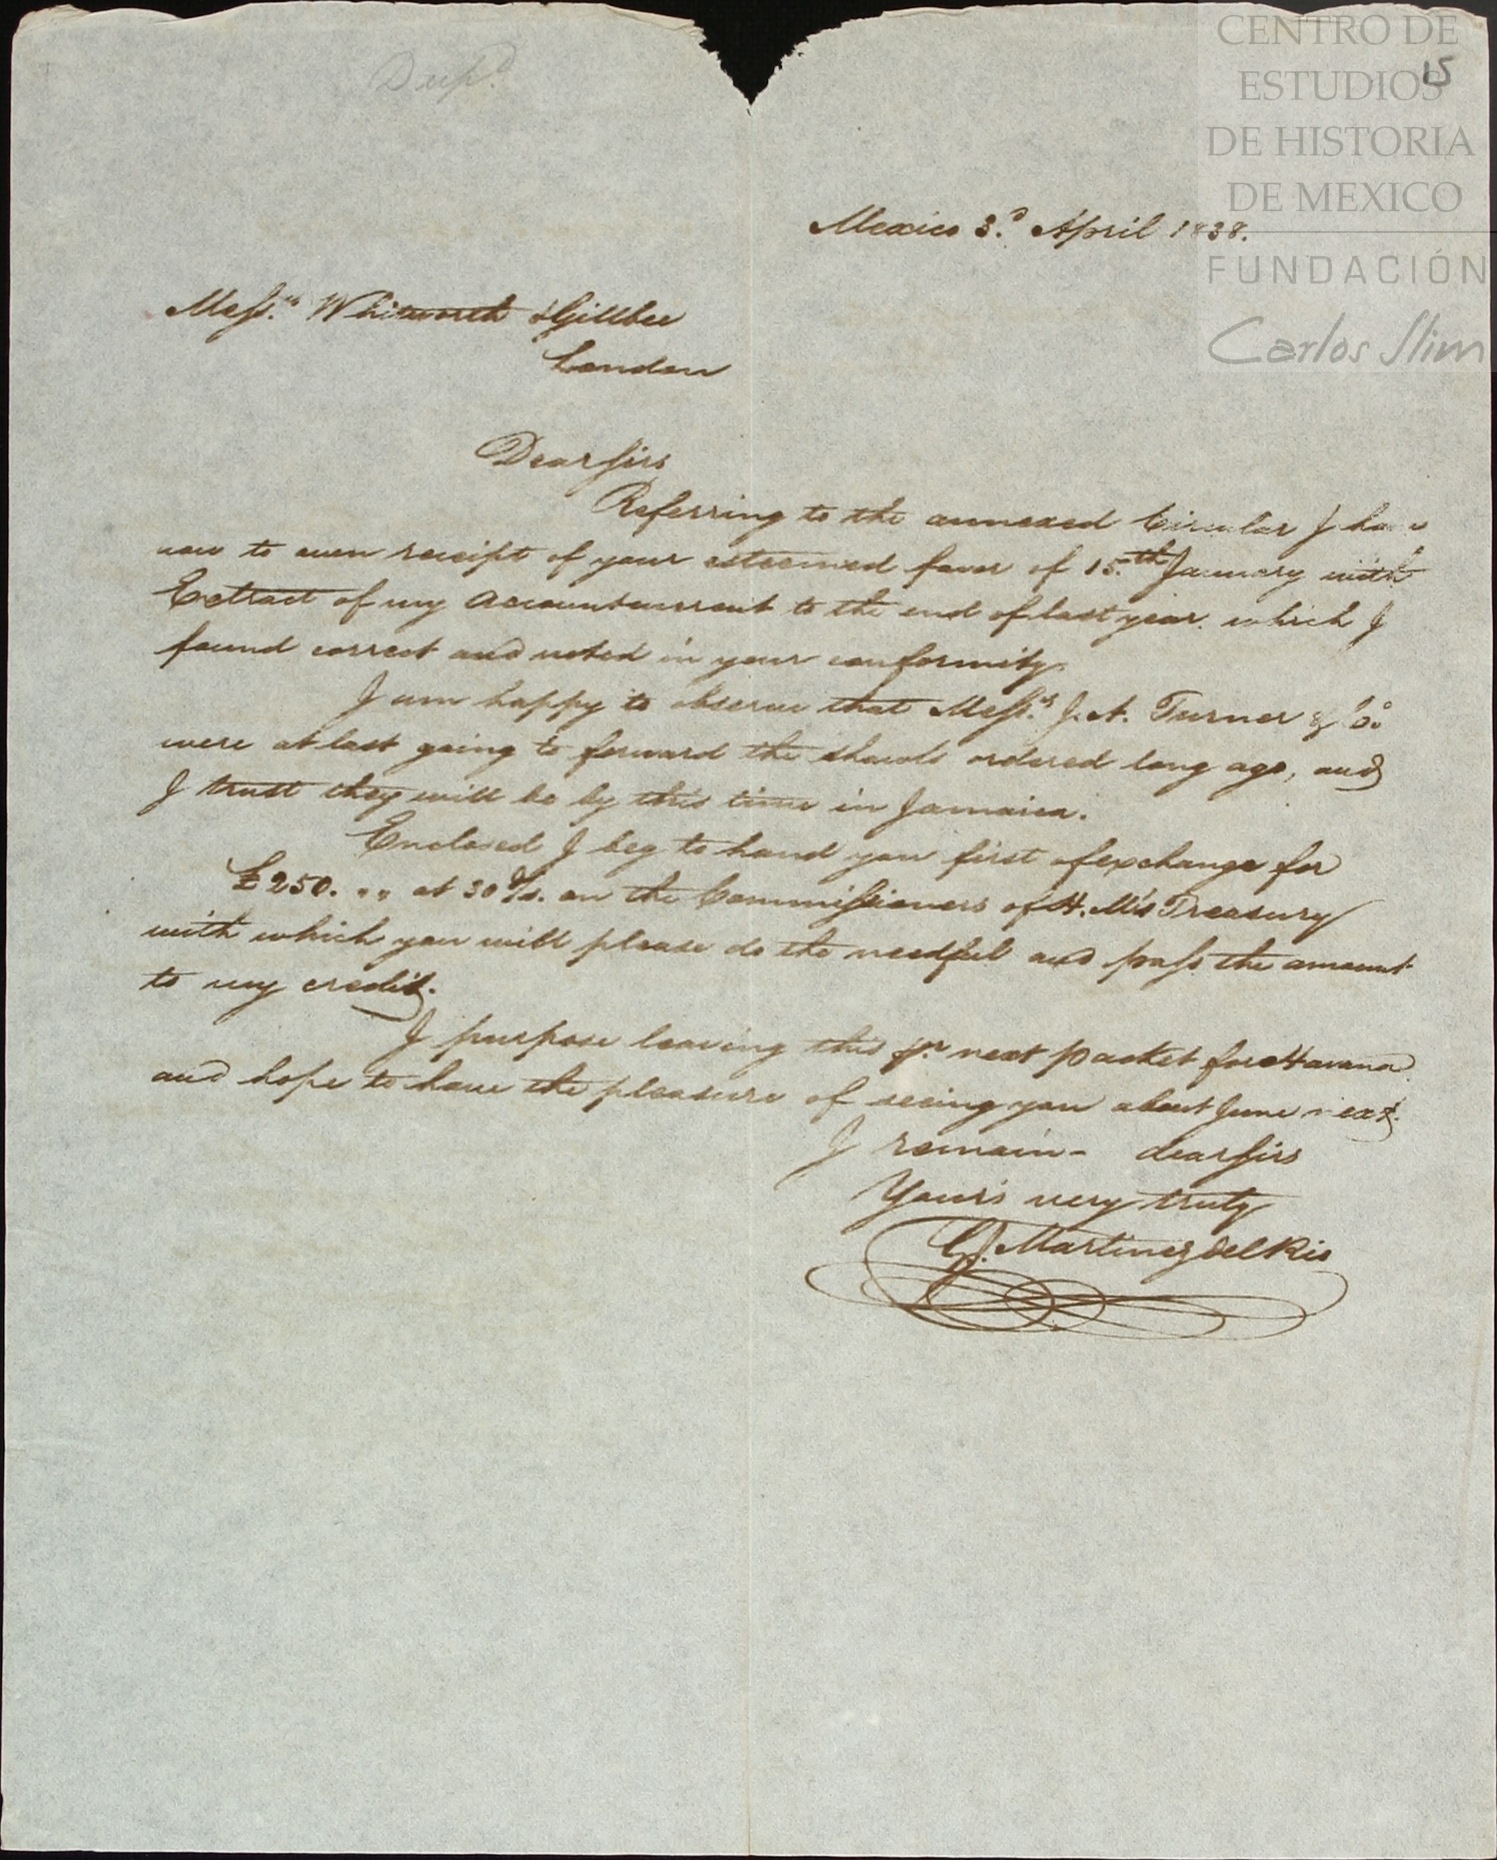 Dup.d
CENTRO DE
ESTUDIOS
15
DE HISTORIA
DE MEXICO
FUNDACIÓN
Carlos Slim
Mexico 3.d April 1838.
Mess.rs Whitworth & Gillbee
London
Dear Sirs
Referring to the annexed Circular I have
now to own receipt of your esteemed favor of 15.th January with
Extract of my Account current to the end of last year. which I
found correct and noted in your conformity.
I am happy to observe that Mess.rs J. A. Turner & Co.
were at last going to forward the shawls ordered long ago, and
I trust they will be by this time in Jamaica.
Enclosed I beg to hand you first of exchange for
£250. „„ at 30 d/s. on the Commissioners of H. M's Treasury
with which you will please do the needful and pass the amount
to my credit.
I purpose leaving this pr. next packet for Havana
and hope to have the pleasure of seeing you about June next.
I remain - dear Sirs
Your's very truly
G. Martinez del Rio